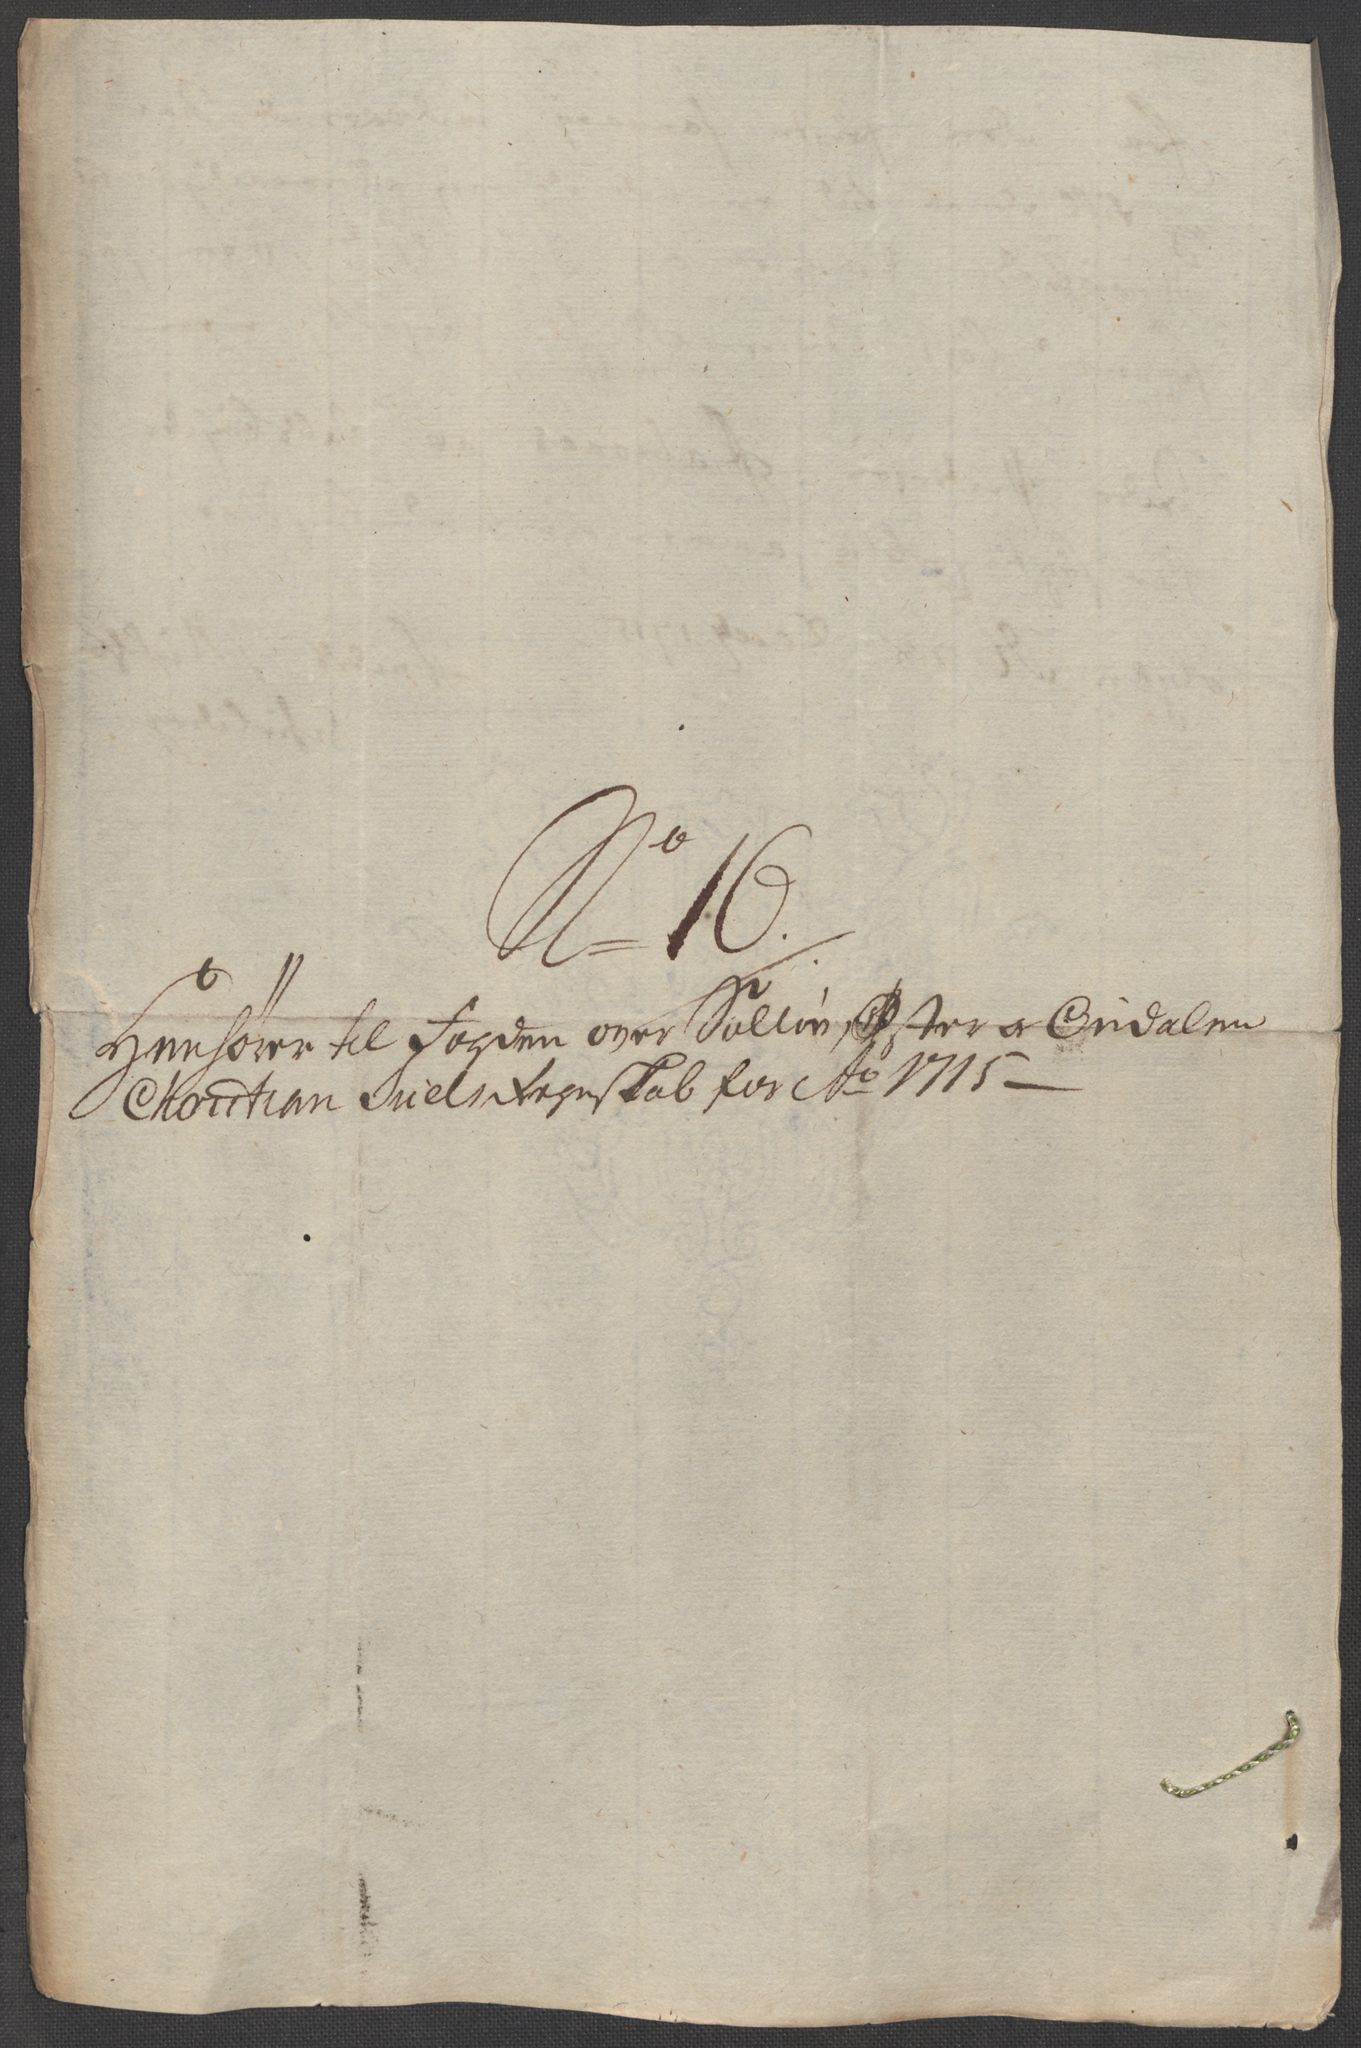 No 16.
Henhörer til Fogden over Solloer, Øster a Ordalen
Christian Niels Regnskab for Ao 1715